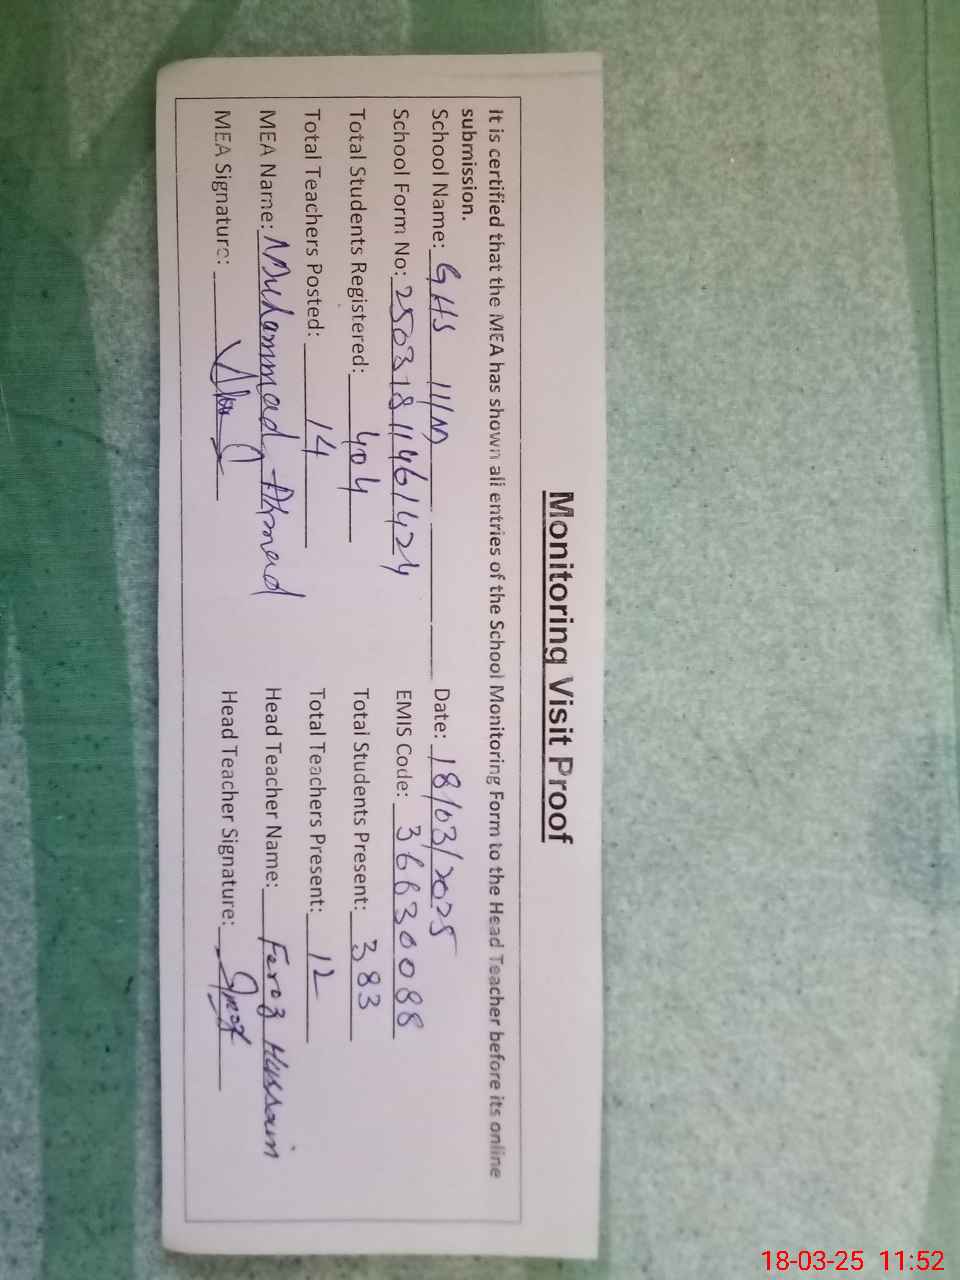 Monitoring Visit Proof
It is certified that the MEA has shown all entries of the School Monitoring Form to the Head Teacher before its online
submission.
School Name: GHS 11/M Date: 18/03/2025
School Form No: 25031811461424 EMIS Code: 36630088
Total Students Registered: 404 Total Students Present: 383
Total Teachers Posted: 14 Total Teachers Present: 12
MEA Name: Muhammad Ahmad Head Teacher Name: Feroz Hussain
MEA Signature: Head Teacher Signature:
18-03-25 11:52